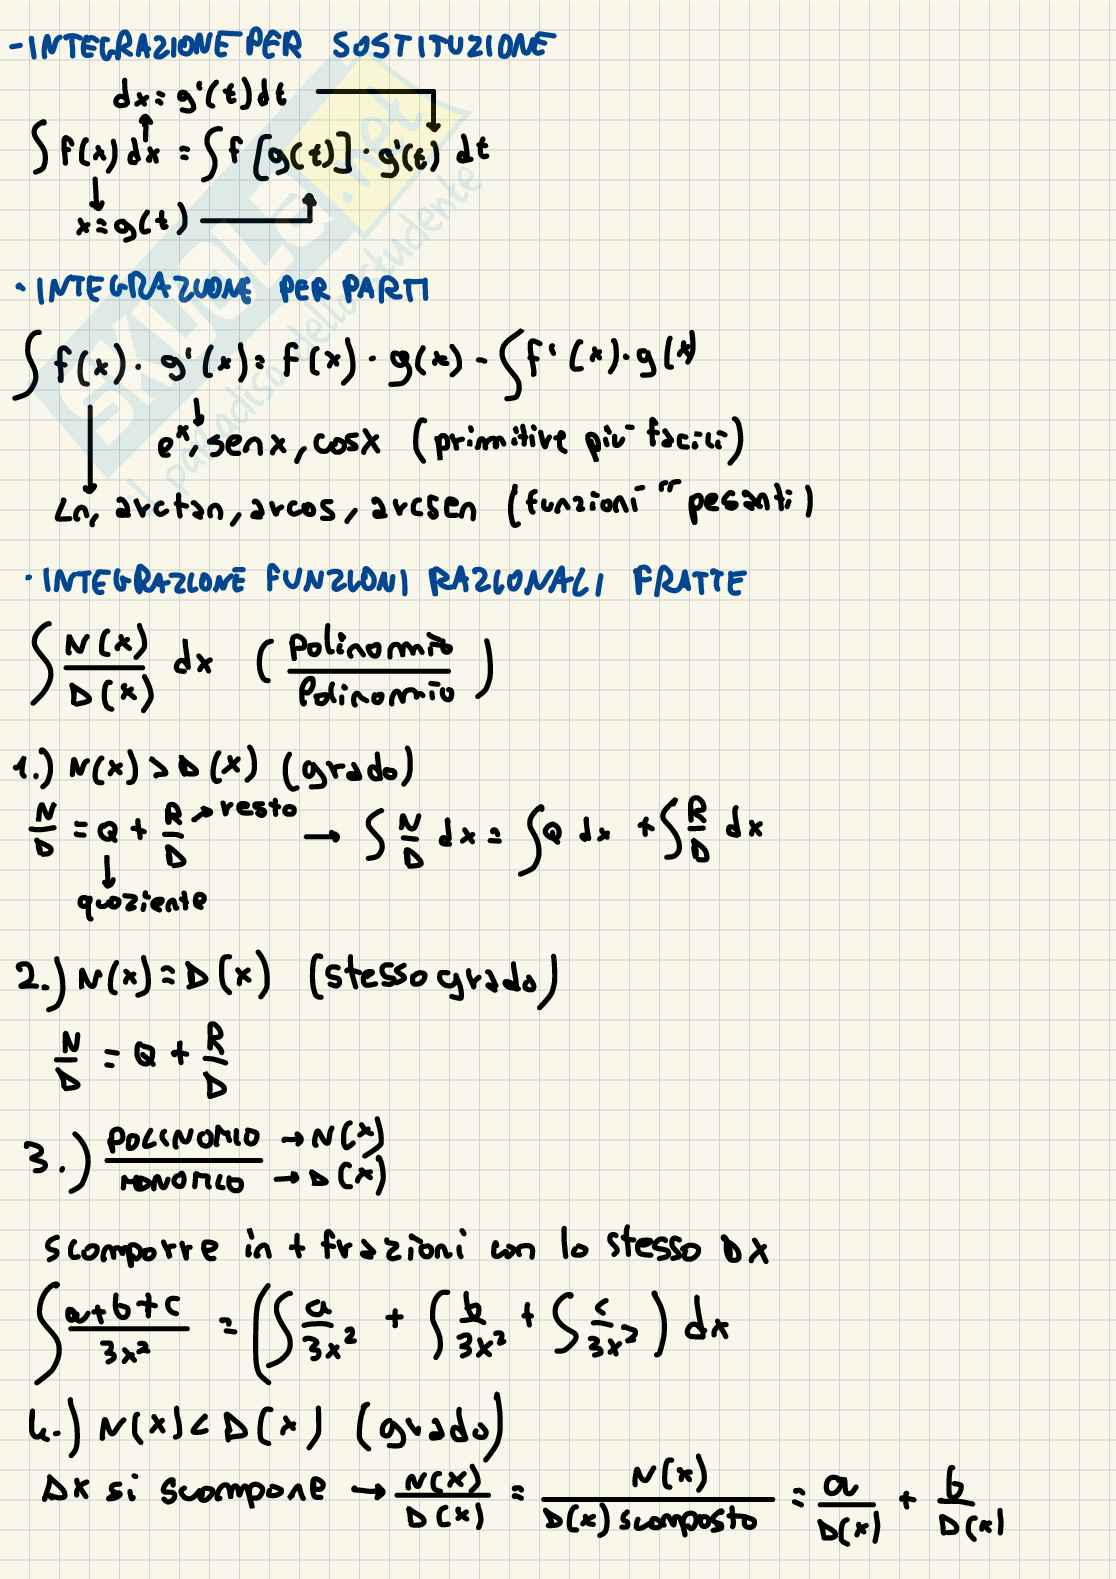 - INTEGRAZIONE PER SOSTITUZIONE
dx = g'(t)dt
∫ f(x) dx = ∫ f [g(t)] · g'(t) dt
x = g(t)
· INTEGRAZIONE PER PARTI
∫ f(x) · g'(x) = f(x) · g(x) - ∫ f'(x) · g(x)
eˣ, sen x, cos x (primitive più facili)
Ln, arctan, arcos, arcsen (funzioni " pesanti)
· INTEGRAZIONE FUNZIONI RAZIONALI FRATTE
∫ N(x)/D(x) dx (Polinomio/Polinomio)
1.) N(x) > D(x) (grado)
N/D = Q + R/D → resto → ∫ N/D dx = ∫ Q dx + ∫ R/D dx
quoziente
2.) N(x) = D(x) (stesso grado)
N/D = Q + R/D
3.) POLINOMIO → N(x)
MONOMIO → D(x)
scomporre in + frazioni con lo stesso DX
∫ a+b+c/3x² = (∫ a/3x² + ∫ b/3x² + ∫ c/3x²) dx
4.) N(x) < D(x) (grado)
DX si scompone → N(x)/D(x) = N(x)/D(x) scomposto = a/D(x) + b/D(x)
SKUOLA.net
il paradiso dello studente